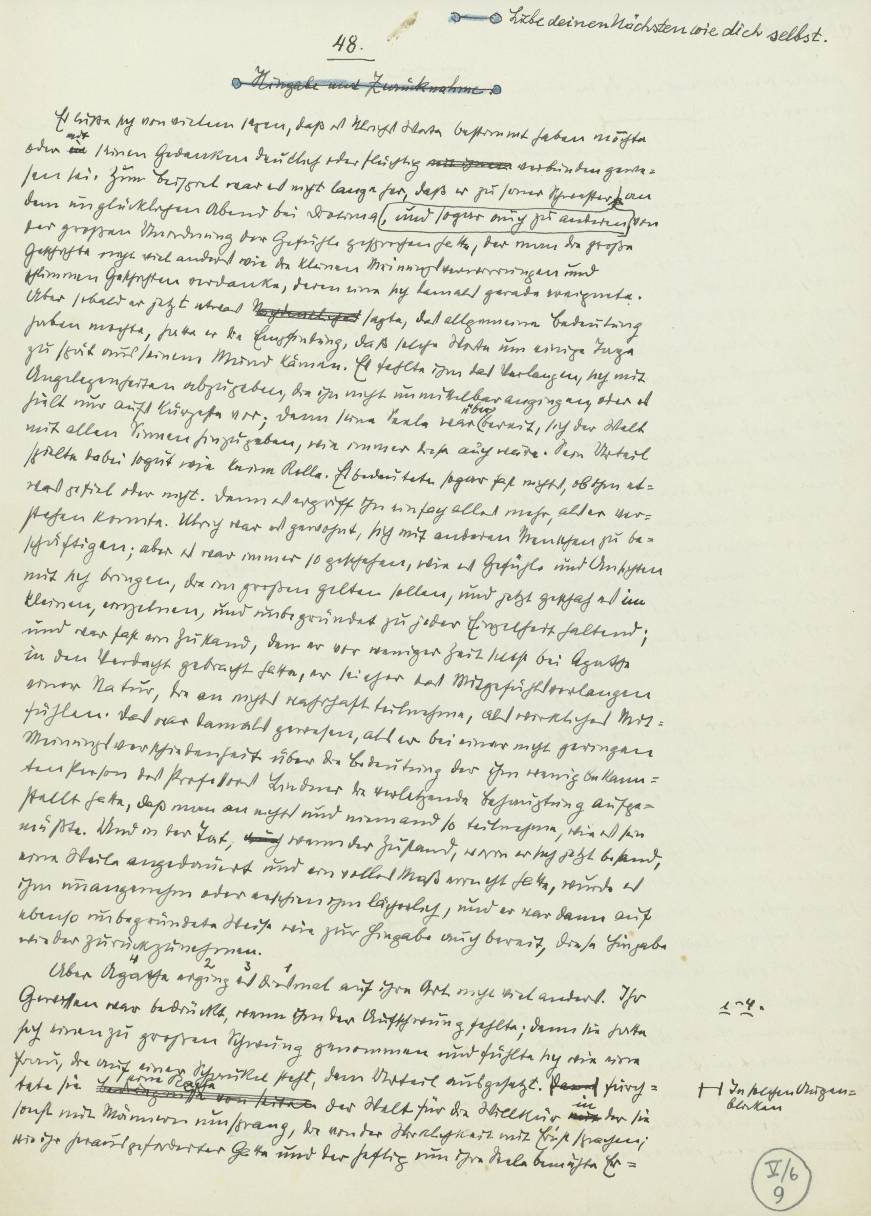 Liebe deinen Nächsten wie dich selbst.
48.
Hingabe und Zurücknahme.
Es ließe sich von vielem sagen, daß es Ulrichs Worte bestimmt haben mochte
oder mit seinen Gedanken deutlich oder flüchtig verbunden gewe=
sen sei. Zum Beispiel war es nicht lange her, daß er zu seiner Schwester, an
dem unglücklichen Abend bei Diotima, und sogar auch zu anderen von
der großen Unordnung der Gefühle gesprochen hatte, der man die große
Geschichte nicht viel anders wie die kleinen Meinungsverwirrungen und
schlimmen Geschichten verdanke, deren eine sich damals gerade ereignete.
Aber sobald er jetzt etwas sagte, das allgemeine Bedeutung
haben mochte, hatte er die Empfindung, daß solche Worte um einige Tage
zu spät aus seinem Mund kämen. Es fehlte ihm das Verlangen, sich mit
Angelegenheiten abzugeben, die ihn nicht unmittelbar angingen, oder es
hielt nur aufs kürzeste vor; denn seine Seele war überbereit, sich der Welt
mit allen Sinnen hinzugeben, wie immer diese auch wäre. Sein Urteil
spielte dabei sogut wie keine Rolle. Es bedeutete sogar fast nichts, ob ihm et=
was gefiel oder nicht. Denn es ergriff ihn einfach alles mehr, als er ver=
stehen konnte. Ulrich war es gewohnt, sich mit anderen Menschen zu be=
schäftigen; aber es war immer so geschehen, wie es Gefühle und Ansichten
mit sich bringen, die im großen gelten sollen, und jetzt geschah es im
kleinen, einzelnen, und unbegründet zu jeder Einzelheit haltend;
und war fast ein Zustand, den er vor weniger Zeit selbst bei Agathe
in den Verdacht gebracht hatte, er sei eher das Mitgefühlsverlangen
einer Natur, die an nichts wahrhaft teilnehme, als wirkliches Mit=
fühlen. Das war damals gewesen, als er bei einer nicht geringen
Meinungsverschiedenheit über die Bedeutung der ihm wenig bekann=
ten Person des Professors Lindner die verletzende Behauptung aufge=
stellt hatte, daß man an nichts und niemand so teilnehme, wie es sein
müßte. Und in der Tat, wenn der Zustand, worin er sich jetzt befand,
eine Weile angedauert und ein volles Maß erreicht hatte, wurde es
ihm unangenehm oder erschien ihm lächerlich, und er war dann auf
ebenso unbegründete Weise wie zur Hingabe auch bereit, diese Hingabe
wieder zurückzunehmen.
Aber Agathe erging es diesmal auf ihre Art nicht viel anders. Ihr
4 2 3 1
Gewissen war bedrückt, wenn ihm der Aufschwung fehlte; denn sie hatte
1-4.
sich einen zu großen Schwung genommen und fühlte sich wie eine
Frau, die auf einer Schaukel steht, dem Urteil ausgesetzt. fürch=
In solchen Augen=
blicken
tete sie eine Rache der Welt für die Willkür in der sie
sonst mit Männern umsprang, die von der Wirklichkeit mit Ernst sprachen;
wie ihr herausgeforderter Gatte und der heftig um ihre Seele bemühte Er=
V/6
9